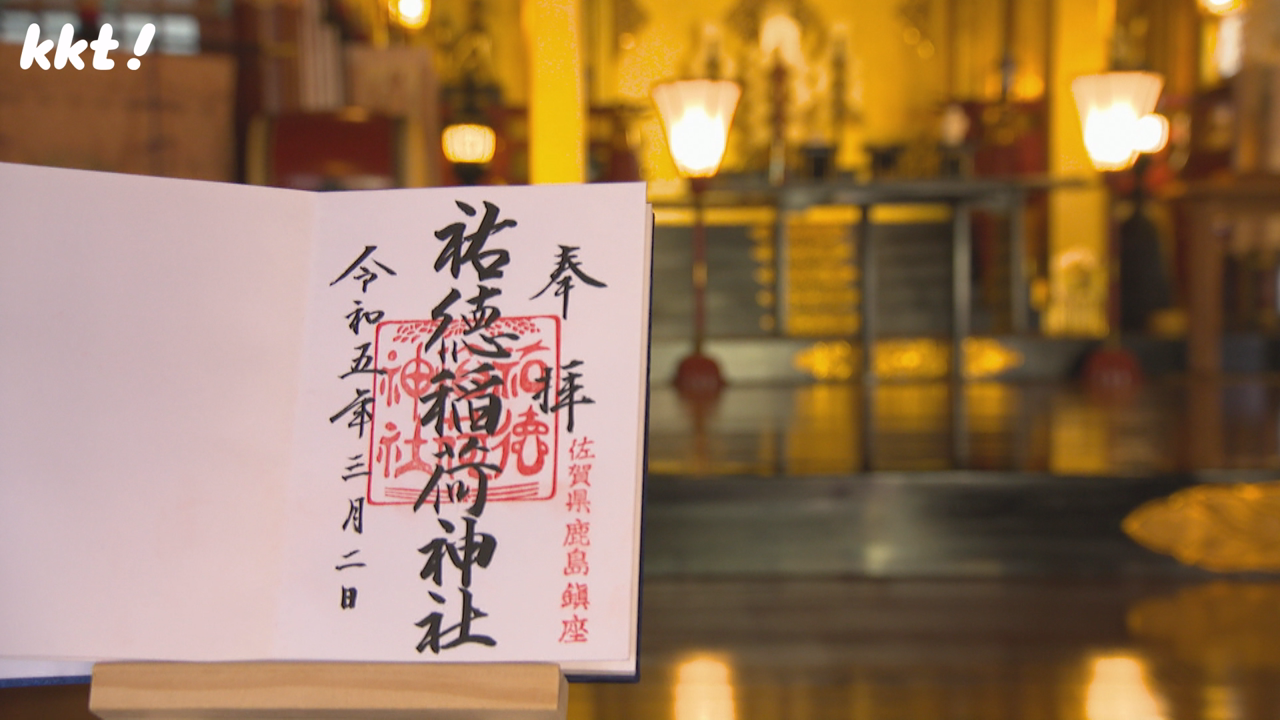 kkt!
奉拝
佐賀県鹿島鎮座
祐徳稲荷神社
令和五年三月二日